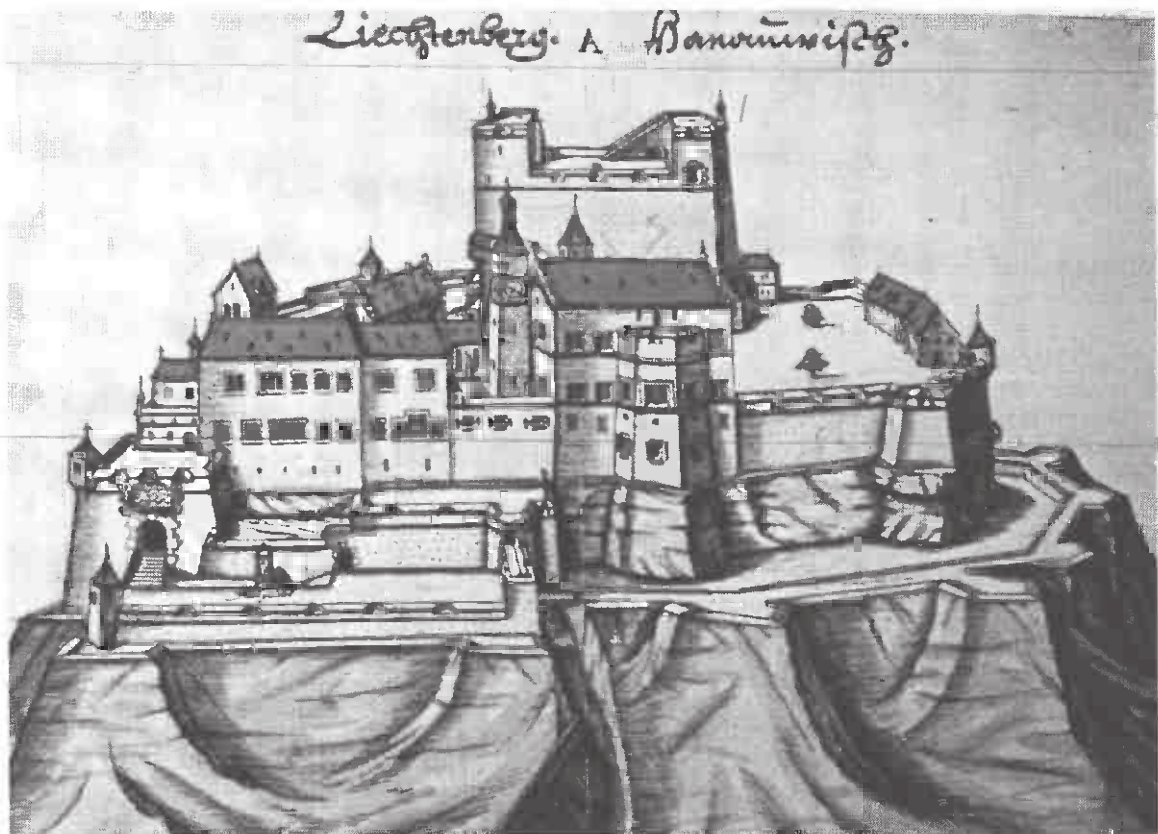 Liechtenberg. A Hanauwisch.